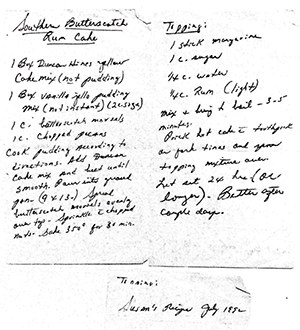 Southern Butterscotch
Rum Cake
1 Box Duncan Hines yellow
Cake mix (not pudding)
1 Box vanilla jello pudding
mix (not instant) (2c size)
1 c. butterscotch morsels
1 c. chopped pecans
Cook pudding according to
directions. Add Duncan
Cake mix and beat until
smooth. Pour into greased
pan - (9 x 13 -) Spread
butterscotch morsels evenly
over top - Sprinkle c chopped
nuts. Bake 350° for 30 min.
Topping:
1 stick margarine
1 c. sugar
1/4 c. water
1/4 c. Rum (light)
mix & bring to boil - 3-5
minutes.
Prick hot cake c toothpick
or fork tines and spoon
topping mixture over
Let set 24 hrs (or
longer) - Better after
couple days.
Susan's Recipe July